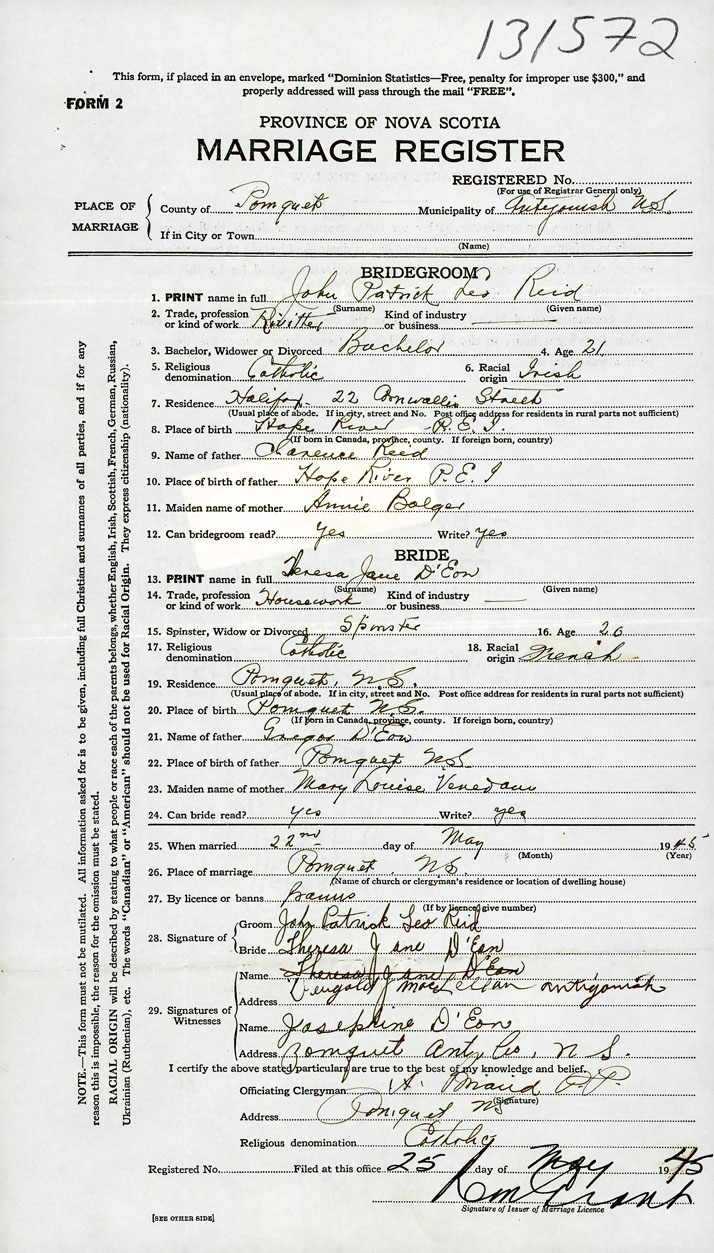 131572
This form, if placed in an envelope, marked "Dominion Statistics—Free, penalty for improper use $300," and
properly addressed will pass through the mail "FREE".
FORM 2
PROVINCE OF NOVA SCOTIA
MARRIAGE REGISTER
REGISTERED No.
(For use of Registrar General only)
PLACE OF MARRIAGE
County of Pomquet Municipality of Antigonish N.S.
If in City or Town
(Name)
BRIDEGROOM
1. PRINT name in full John Patrick Leo Reid
(Surname) (Given name)
2. Trade, profession or kind of work Rivitter Kind of industry or business
3. Bachelor, Widower or Divorced Bachelor 4. Age 21
5. Religious denomination Catholic 6. Racial origin Irish
7. Residence Halifax 22 Cornwallis Street
(Usual place of abode. If in city, street and No. Post office address for residents in rural parts not sufficient)
8. Place of birth Hope River P.E.I
(If born in Canada, province, county. If foreign born, country)
9. Name of father Clarence Reid
10. Place of birth of father Hope River P.E.I
11. Maiden name of mother Annie Bolger
12. Can bridegroom read? Yes Write? Yes
BRIDE
13. PRINT name in full Teresa Jane D'Eon
(Surname) (Given name)
14. Trade, profession or kind of work Housework Kind of industry or business
15. Spinster, Widow or Divorced Spinster 16. Age 20
17. Religious denomination Catholic 18. Racial origin French
19. Residence Pomquet, N.S.
(Usual place of abode. If in city, street and No. Post office address for residents in rural parts not sufficient)
20. Place of birth Pomquet N.S.
(If born in Canada, province, county. If foreign born, country)
21. Name of father Gregor D'Eon
22. Place of birth of father Pomquet N.S
23. Maiden name of mother Mary Louise Venedam
24. Can bride read? yes Write? yes
25. When married 22nd day of May 1945
(Month) (Year)
26. Place of marriage Pomquet N.S.
(Name of church or clergyman's residence or location of dwelling house)
27. By licence or banns Banns
(If by licence give number)
28. Signature of
Groom John Patrick Leo Reid
Bride Theresa Jane D'Eon
29. Signatures of Witnesses
Name Theresa Jane D'Eon
J MacLellan Antigonish
Address
Name Josephine D'Eon
Address Pomquet Ant. Co, N.S.
I certify the above stated particulars are true to the best of my knowledge and belief.
Officiating Clergyman A. Briand P.P.
(Signature)
Address Pomquet NS
Religious denomination Catholic
Registered No. Filed at this office 25 day of May 1945
Signature of Issuer of Marriage Licence
[SEE OTHER SIDE]
NOTE.—This form must not be mutilated. All information asked for is to be given, including full Christian and surnames of all parties, and if for any
reason this is impossible, the reason for the omission must be stated.
RACIAL ORIGIN will be described by stating to what people or race each of the parents belongs, whether English, Irish, Scottish, French, German, Russian,
Ukrainian (Ruthenian), etc. The words "Canadian" or "American" should not be used for Racial Origin. They express citizenship (nationality).